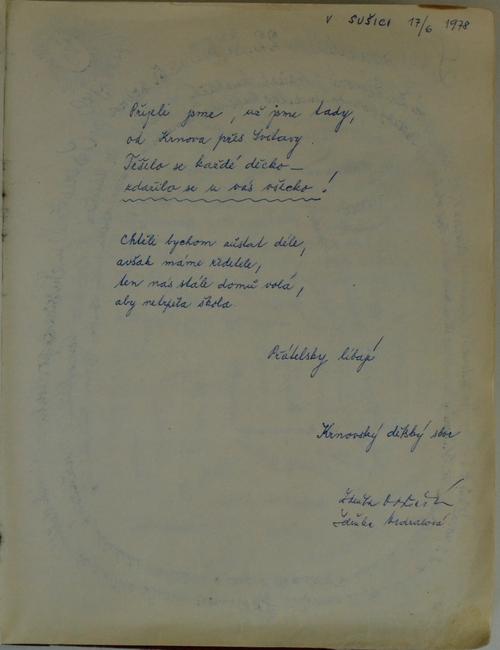 V SUŠICI 17/6 1978
Přijeli jsme, už jsme tady,
od Krnova přes Svitavy.
Těšilo se každé děcko –
zdařilo se u vás všecko!
Chtěli bychom zůstat déle,
avšak máme ředitele,
ten nás stále domů volá,
aby netrpěla škola.
Přátelsky líbají
Krnovský dětský sbor
Zdenka